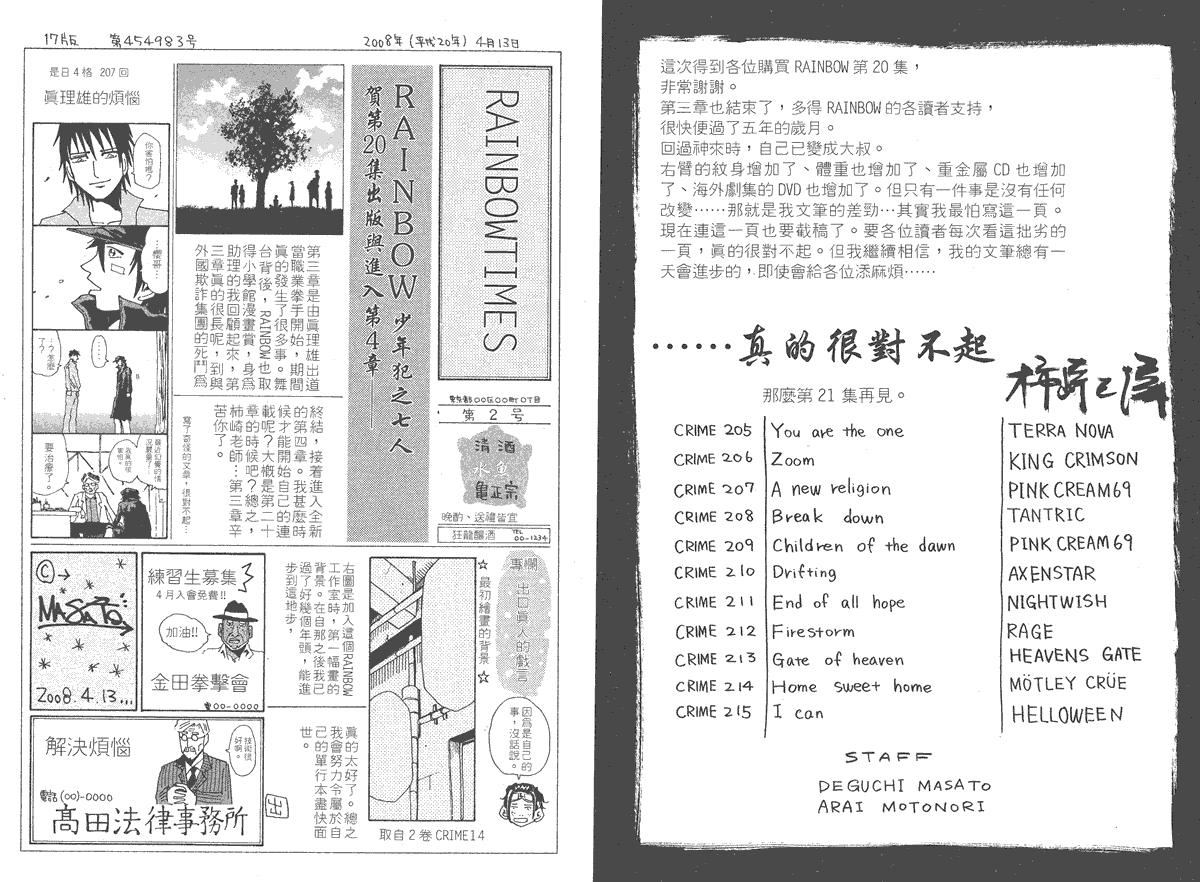 17版 第454983号
2008年(平成20年) 4月13日
是日4格 207回
眞理雄的煩惱
你害怕嗎?
…櫻哥…
……
…?怎麼了?
最近幻覺的情況嚴重了…
我真的很害怕。
要治療了。
RAINBOWTIMES
RAINBOW 少年犯之七人
賀第20集出版與進入第4章——
第三章是由眞理雄出道
當職業拳手開始,期間
眞的發生了很多事。舞
台背後,RAINBOW也取
得小學館漫畫賞,身為
助理的我回顧起來,第
三章眞的很長呢,到與
外國欺詐集團的死鬥為
終結,接着進入全新
的第四章。我甚麼時
候才能開始自己的連
載呢?大概是第二十
章的時候吧?總之,
柿崎老師…第三章辛
苦你了。
寫了奇怪的文章,很對不起…
東京都〇〇区〇〇町〇丁目
第2号
清酒
水魚
亀正宗
晩酌、送禮皆宜
狂龍釀酒 TEL 00-1234
©→
MASATO
2008.4.13...
練習生募集
4月入會免費!!
加油!!
金田拳擊會
☎00-0000
解決煩惱
技術很好啊。
電話(00)-0000
高田法律事務所
專欄 出口眞人的戲言
☆最初繪畫的背景☆
右圖是加入這個RAINBOW
工作室時,第一幅畫的
背景。在自那之後我已
過了好幾個年頭,能進
步到這地步,
眞的太好了。總之
我會努力令屬於自
己的單行本盡快面
世。
因為是自己的事,沒話說。
取自2卷CRIME14
這次得到各位購買RAINBOW第20集,
非常謝謝。
第三章也結束了,多得RAINBOW的各讀者支持,
很快便過了五年的歲月。
回過神來時,自己已變成大叔。
右臂的紋身增加了、體重也增加了、重金屬CD也增加
了、海外劇集的DVD也增加了。但只有一件事是沒有任何
改變……那就是我文筆的差勁…其實我最怕寫這一頁。
現在連這一頁也要截稿了。要各位讀者每次看這拙劣的
一頁,眞的很對不起。但我繼續相信,我的文筆總有一
天會進步的,即使會給各位添麻煩……
……真的很對不起
那麼第21集再見。
CRIME 205 You are the one TERRA NOVA
CRIME 206 Zoom KING CRIMSON
CRIME 207 A new religion PINK CREAM69
CRIME 208 Break down TANTRIC
CRIME 209 Children of the dawn PINK CREAM69
CRIME 210 Drifting AXENSTAR
CRIME 211 End of all hope NIGHTWISH
CRIME 212 Firestorm RAGE
CRIME 213 Gate of heaven HEAVENS GATE
CRIME 214 Home sweet home MÖTLEY CRÜE
CRIME 215 I can HELLOWEEN
STAFF
DEGUCHI MASATO
ARAI MOTONORI